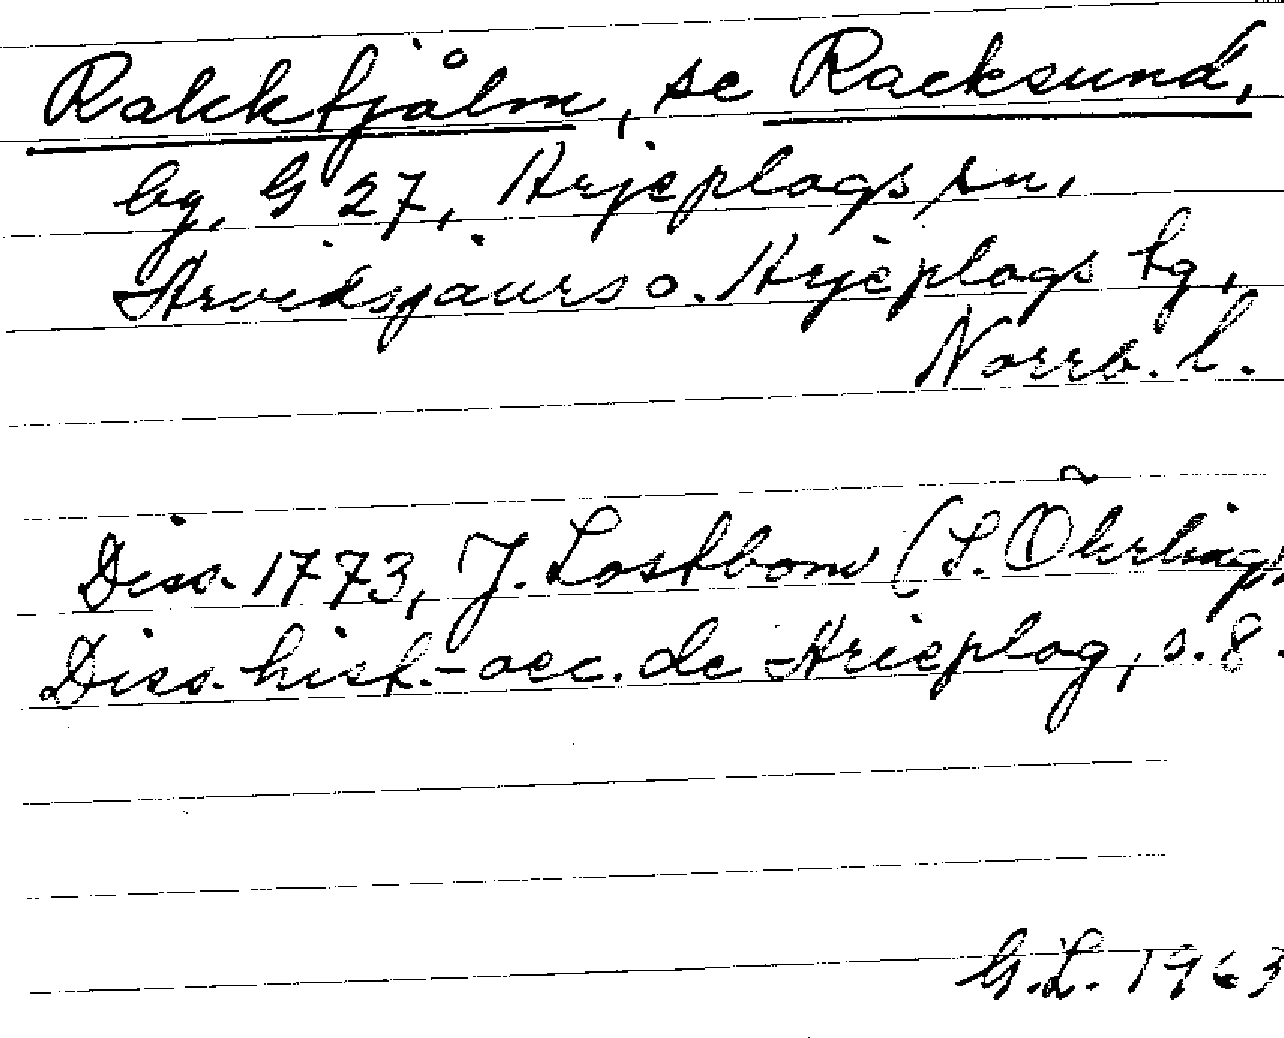 Rakktjålm, se Racksund,
by, G 27, Arjeplogs sn,
Arvidsjaurs o. Arjeplogs tg,
Norrb. l.
Diss. 1773, J. Lostbom (S. Öhrling),
Diss. hist.-oec. de Arieplog, s. 8.
G.L. 1963